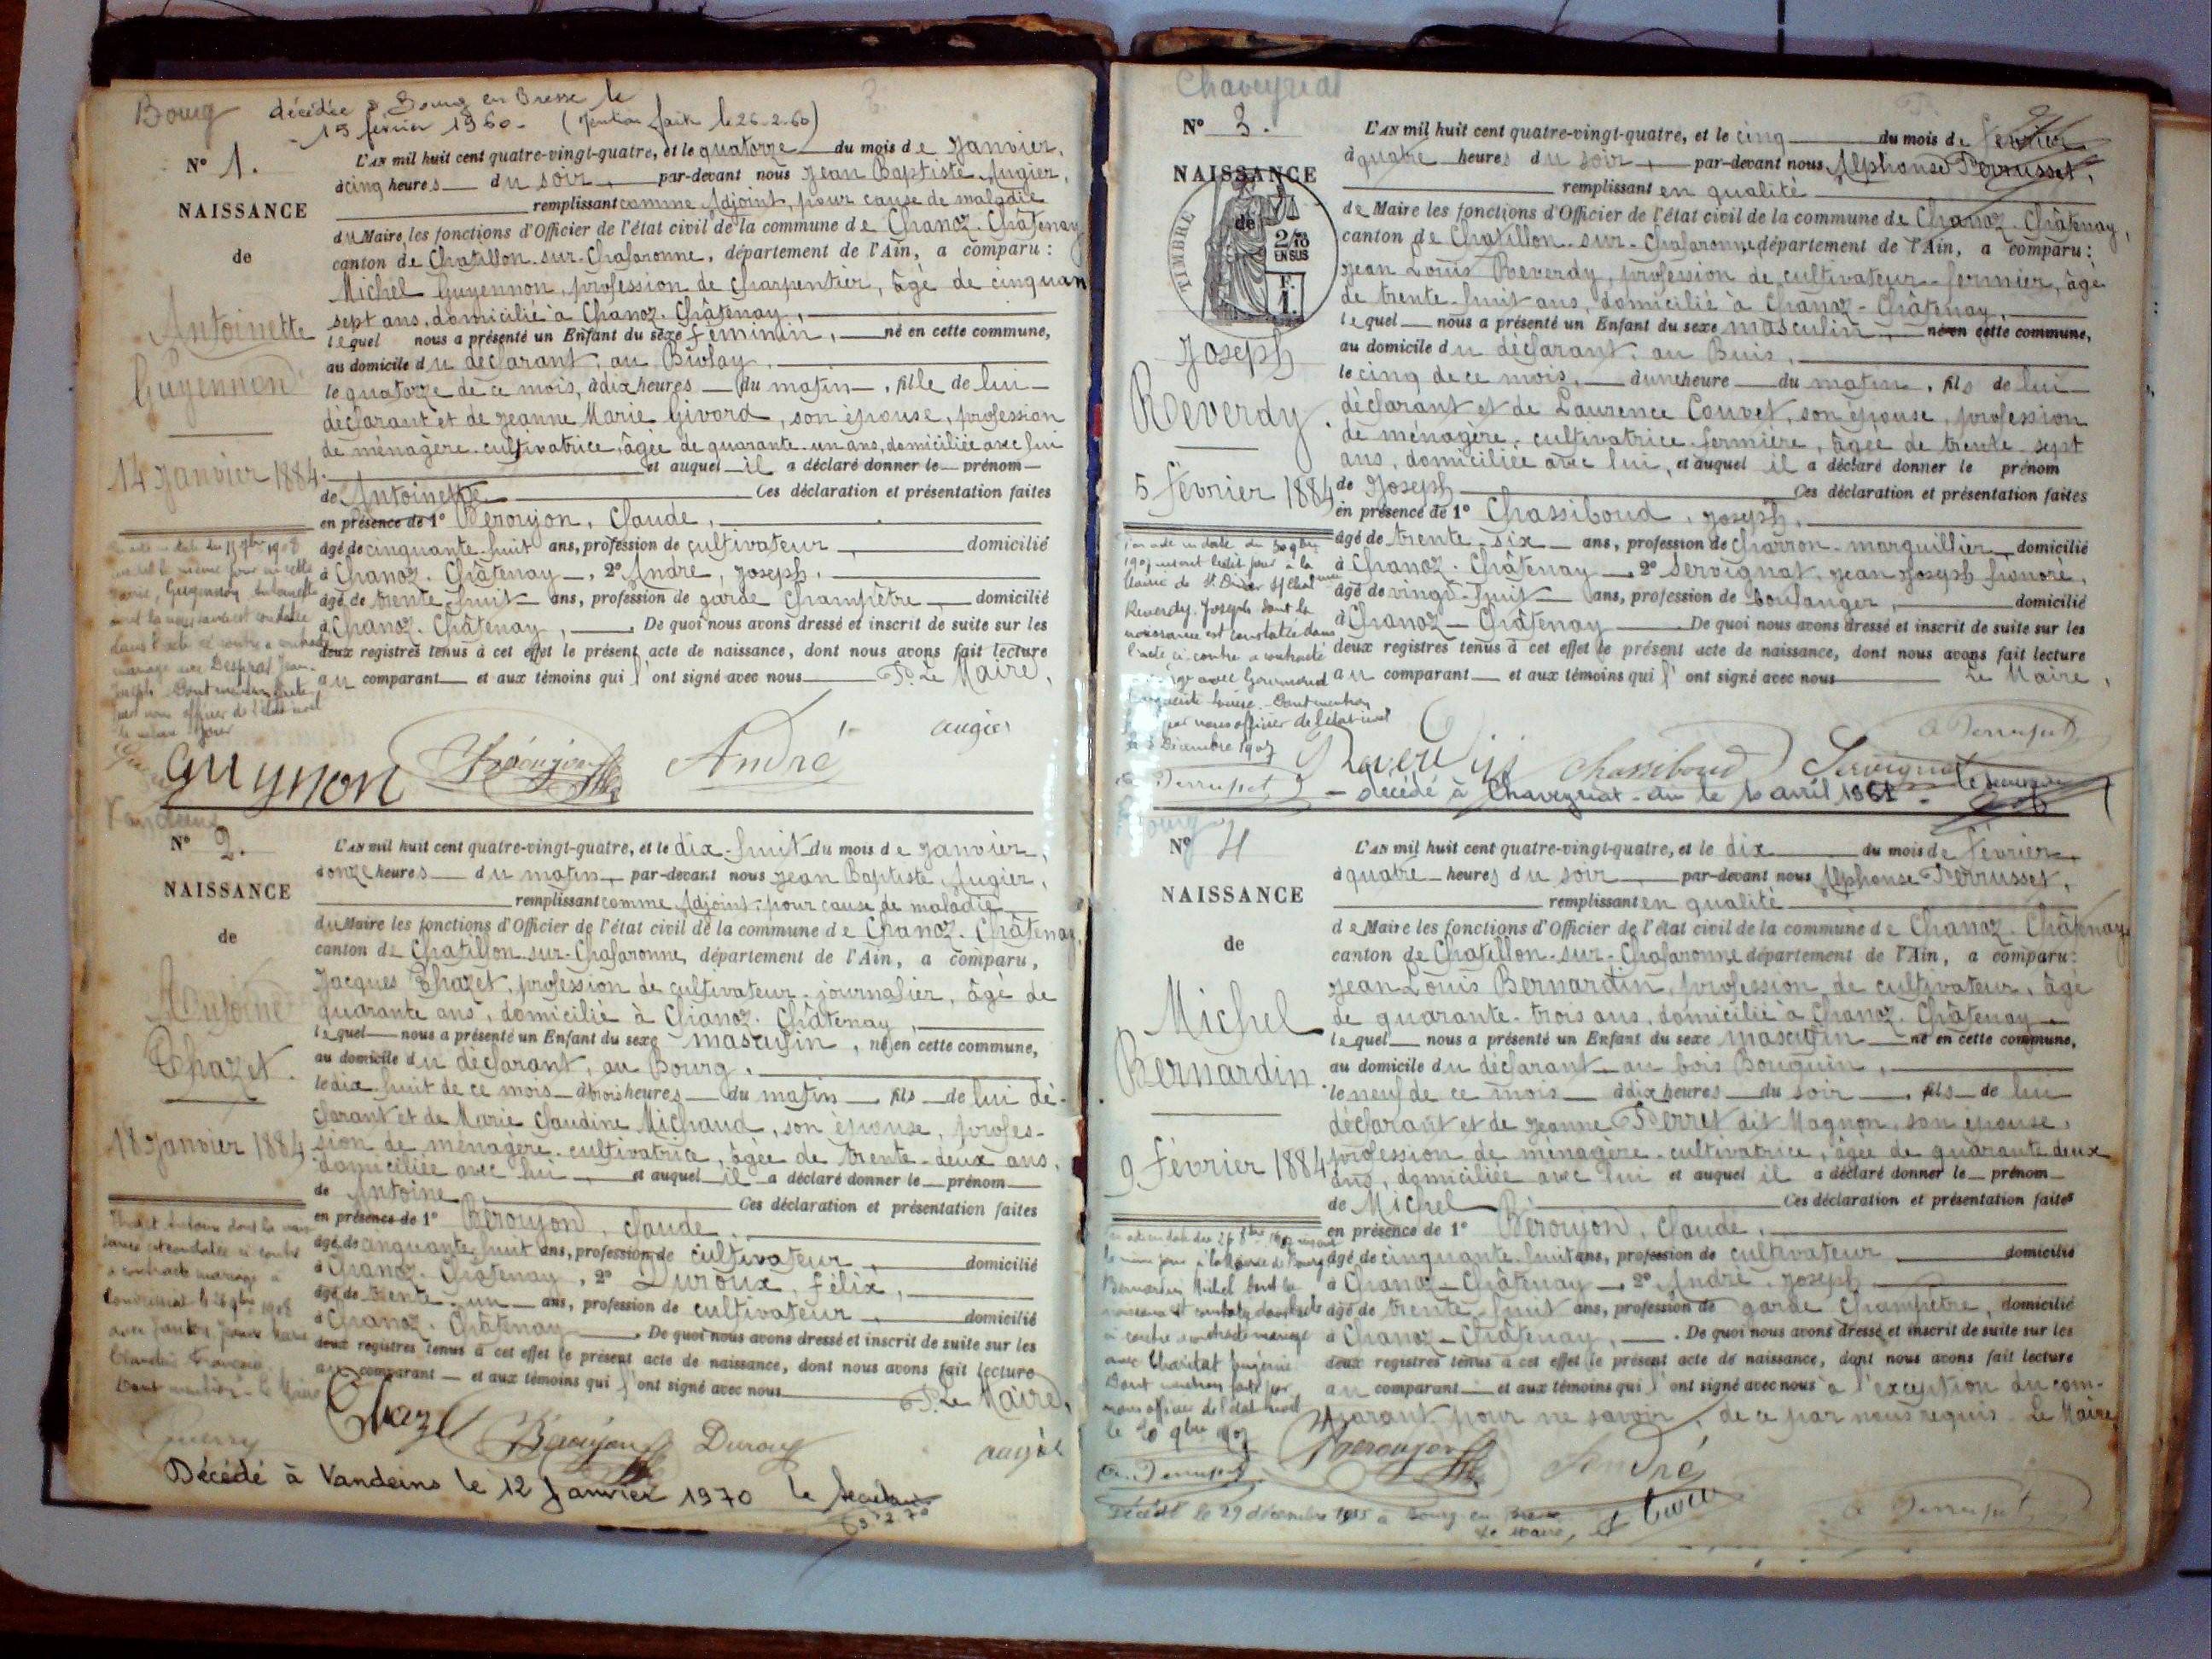 Bourg
décédée à Bourg en Bresse le
15 février 1960. (Mention faite le 26-2-60)
N° 1.
NAISSANCE
de
Antoinette
Guyennon
14 Janvier 1884.
L'AN mil huit cent quatre-vingt-quatre, et le quatorze du mois de Janvier,
à cinq heures du soir, par-devant nous Jean Baptiste Augier,
remplissant comme Adjoint, pour cause de maladie
du Maire les fonctions d'Officier de l'état civil de la commune de Chanoz-Châtenay
canton de Chatillon-sur-Chalaronne, département de l'Ain, a comparu :
Michel Guyennon, profession de charpentier, âgé de cinquan
sept ans, domicilié à Chanoz-Châtenay,
lequel nous a présenté un Enfant du sexe féminin, né en cette commune,
au domicile du déclarant, au Biolay,
le quatorze de ce mois, à dix heures du matin, fille de lui
déclarant et de Jeanne Marie Givord, son épouse, profession
de ménagère-cultivatrice, âgée de quarante-un ans, domiciliée avec lui
et auquel il a déclaré donner le prénom
de Antoinette Ces déclaration et présentation faites
en présence de 1° Béroujon, Claude,
âgé de cinquante-huit ans, profession de cultivateur, domicilié
à Chanoz-Châtenay, 2° André, Joseph,
âgé de trente-huit ans, profession de garde champêtre, domicilié
à Chanoz-Châtenay, De quoi nous avons dressé et inscrit de suite sur les
deux registres tenus à cet effet le présent acte de naissance, dont nous avons fait lecture
au comparant et aux témoins qui l'ont signé avec nous P. Le Maire,
Guynon Béroujon André augier
N° 2.
NAISSANCE
de
Antoine
Chazet.
18 Janvier 1884
L'AN mil huit cent quatre-vingt-quatre, et le dix-huit du mois de Janvier,
à onze heures du matin, par-devant nous Jean Baptiste Augier,
remplissant comme Adjoint, pour cause de maladie
du Maire les fonctions d'Officier de l'état civil de la commune de Chanoz-Châtenay,
canton de Chatillon-sur-Chalaronne, département de l'Ain, a comparu,
Jacques Chazet, profession de cultivateur-journalier, âgé de
quarante ans, domicilié à Chanoz-Châtenay,
lequel nous a présenté un Enfant du sexe masculin, né en cette commune,
au domicile du déclarant, au Bourg,
le dix-huit de ce mois à trois heures du matin, fils de lui dé-
clarant et de Marie Claudine Michaud, son épouse, profes-
sion de ménagère-cultivatrice, âgée de trente-deux ans,
domiciliée avec lui, et auquel il a déclaré donner le prénom
de Antoine Ces déclaration et présentation faites
en présence de 1° Béroujon, Claude,
âgé de cinquante-huit ans, profession de cultivateur, domicilié
à Chanoz-Châtenay, 2° Duroux, Félix,
âgé de trente-un ans, profession de cultivateur, domicilié
à Chanoz-Châtenay De quoi nous avons dressé et inscrit de suite sur les
deux registres tenus à cet effet le présent acte de naissance, dont nous avons fait lecture
au comparant et aux témoins qui l'ont signé avec nous P. Le Maire,
Chazet Béroujon Duroux augier
Décédé à Vandeins le 12 Janvier 1970 le Secrétaire
Chaveyriat
N° 3.
NAISSANCE
de
TIMBRE
2/10
EN SUS
F.
1.
Joseph
Reverdy.
5 Février 1884
L'AN mil huit cent quatre-vingt-quatre, et le cinq du mois de Février
à quatre heures du soir, par-devant nous Alphonse Perrusset,
remplissant en qualité
de Maire les fonctions d'Officier de l'état civil de la commune de Chanoz-Châtenay,
canton de Chatillon-sur-Chalaronne, département de l'Ain, a comparu :
Jean Louis Reverdy, profession de cultivateur-fermier, âgé
de trente-huit ans, domicilié à Chanoz-Châtenay,
lequel nous a présenté un Enfant du sexe masculin, né en cette commune,
au domicile du déclarant, au Buis,
le cinq de ce mois, à une heure du matin, fils de lui
déclarant et de Laurence Couvet, son épouse, profession
de ménagère-cultivatrice-fermière, âgée de trente-sept
ans, domiciliée avec lui, et auquel il a déclaré donner le prénom
de Joseph Ces déclaration et présentation faites
en présence de 1° Chassiboud, Joseph,
âgé de trente-six ans, profession de charron-marguillier, domicilié
à Chanoz-Châtenay, 2° Servignat, Jean Joseph honoré,
âgé de vingt-huit ans, profession de boulanger, domicilié
à Chanoz-Châtenay De quoi nous avons dressé et inscrit de suite sur les
deux registres tenus à cet effet le présent acte de naissance, dont nous avons fait lecture
au comparant et aux témoins qui l'ont signé avec nous Le Maire,
Reverdy. Joseph dont la
naissance est constatée dans
l'acte ci-contre a contracté
par nous officier de l'état civil
Décembre 1907
a Perrusset
Reverdy Chassiboud Servignat a Perrusset
décédé à Chaveyriat - Ain le 10 avril 1961 -
Bourg
N° 4
NAISSANCE
de
Michel
Bernardin.
9 Février 1884
L'AN mil huit cent quatre-vingt-quatre, et le dix du mois de Février,
à quatre heures du soir, par-devant nous Alphonse Perrusset,
remplissant en qualité
de Maire les fonctions d'Officier de l'état civil de la commune de Chanoz-Châtenay
canton de Chatillon-sur-Chalaronne département de l'Ain, a comparu :
Jean Louis Bernardin, profession de cultivateur, âgé
de quarante-trois ans, domicilié à Chanoz-Châtenay
lequel nous a présenté un Enfant du sexe masculin né en cette commune,
au domicile du déclarant au bois Bouquin,
le neuf de ce mois à dix heures du soir, fils de lui
déclarant et de Jeanne Perret dit Magnon, son épouse,
profession de ménagère-cultivatrice, âgée de quarante deux
ans, domiciliée avec lui et auquel il a déclaré donner le prénom
de Michel Ces déclaration et présentation faites
en présence de 1° Béroujon, Claude,
âgé de cinquante-huit ans, profession de cultivateur domicilié
à Chanoz-Châtenay, 2° André, Joseph
âgé de trente-huit ans, profession de garde champêtre, domicilié
à Chanoz-Châtenay, De quoi nous avons dressé et inscrit de suite sur les
deux registres tenus à cet effet le présent acte de naissance, dont nous avons fait lecture
au comparant et aux témoins qui l'ont signé avec nous à l'exception du com-
parant pour ne savoir, de ce par nous requis Le Maire
Bernardin Michel dont la
Dont mention faite par
nous officier de l'état civil
a Perrusset
Béroujon André a Perrusset
Décédé le 29 décembre 1955 à Bourg en Bresse
Le Maire,